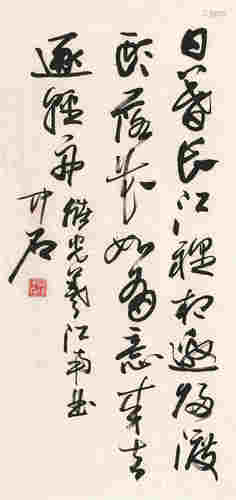 日暮长江裡相邀归渡
头落花如有意来去
逐轻舟 储光羲江南曲
中石